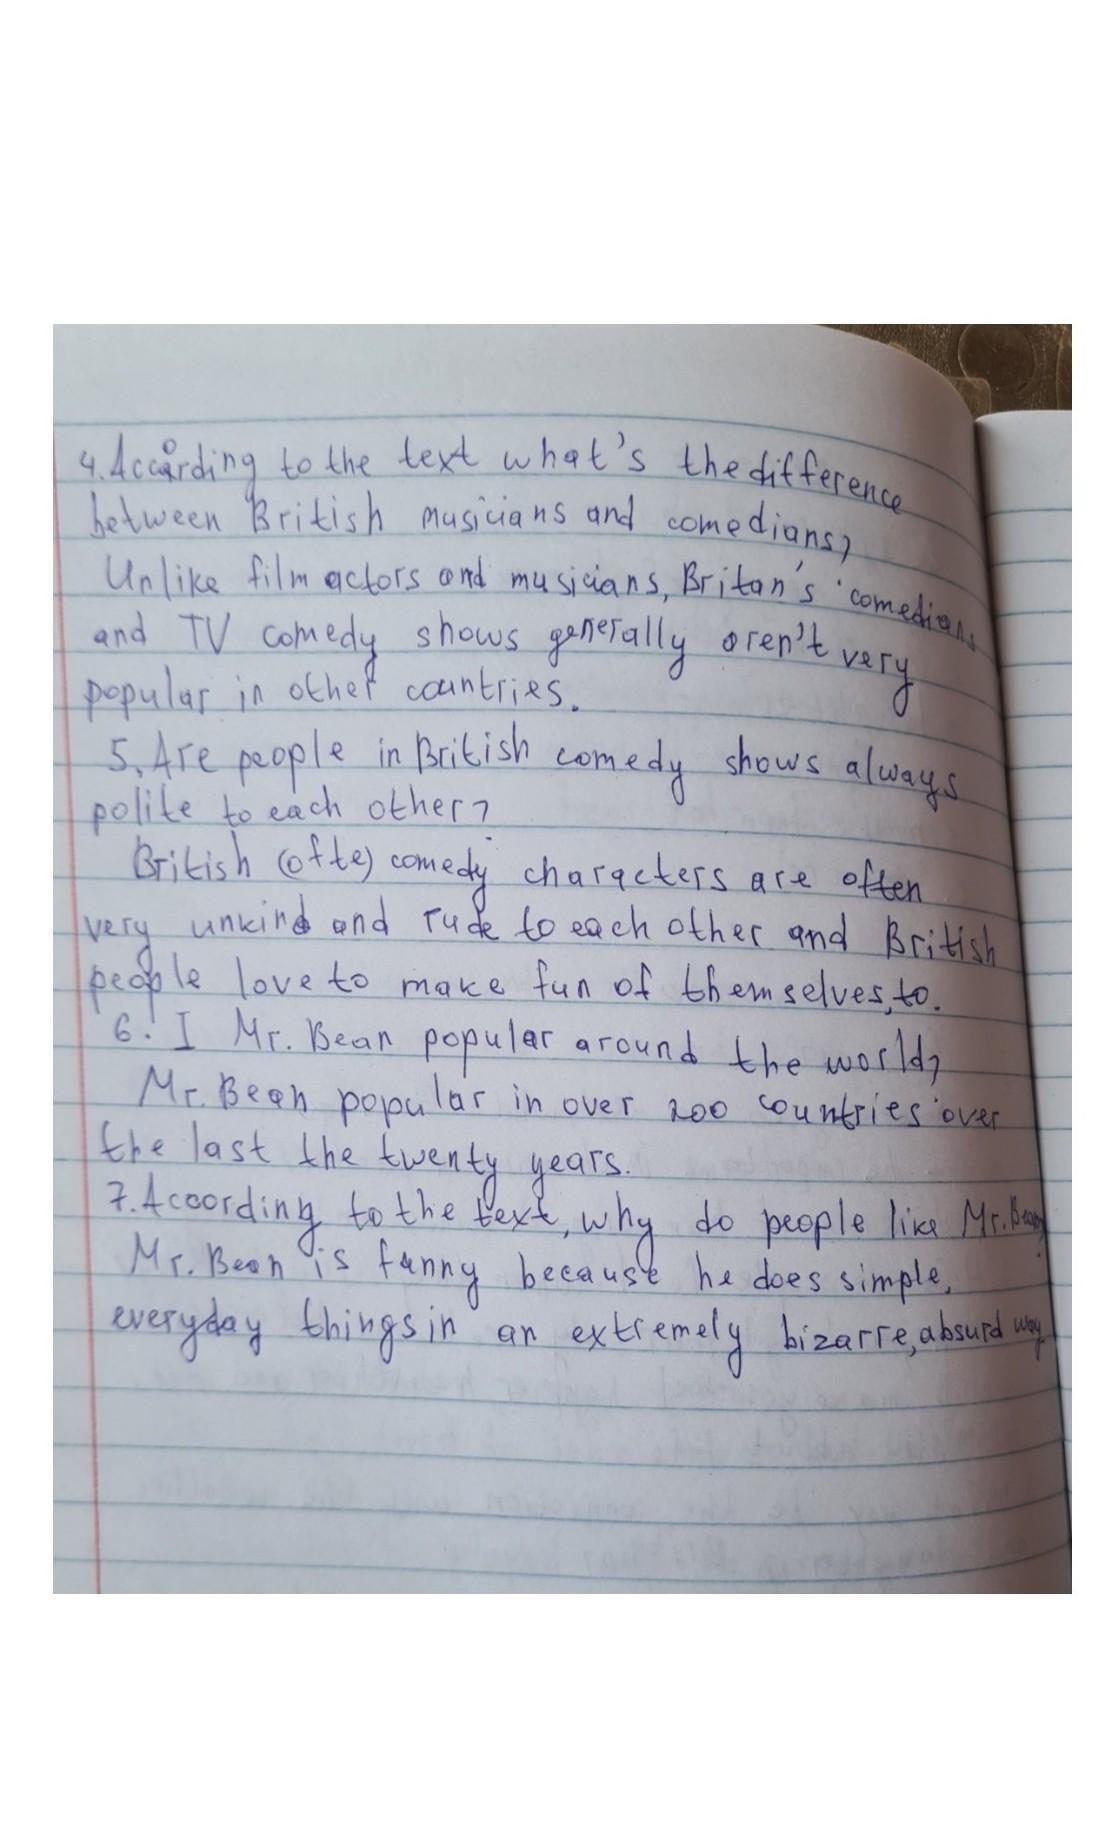 4. According to the text what's the difference
between British musicians and comedians?
Unlike film actors and musicians, Britan's comedians
and TV comedy shows generally aren't very
popular in other countries.
5. Are people in British comedy shows always
polite to each other?
British (ofte) comedy characters are often
very unkind and rude to each other and British
people love to make fun of themselves, to.
6. I Mr. Bean popular around the world?
Mr. Bean popular in over 200 countries over
the last the twenty years.
7. According to the text, why do people like Mr. Bean?
Mr. Bean is funny because he does simple,
everyday things in an extremely bizarre, absurd way